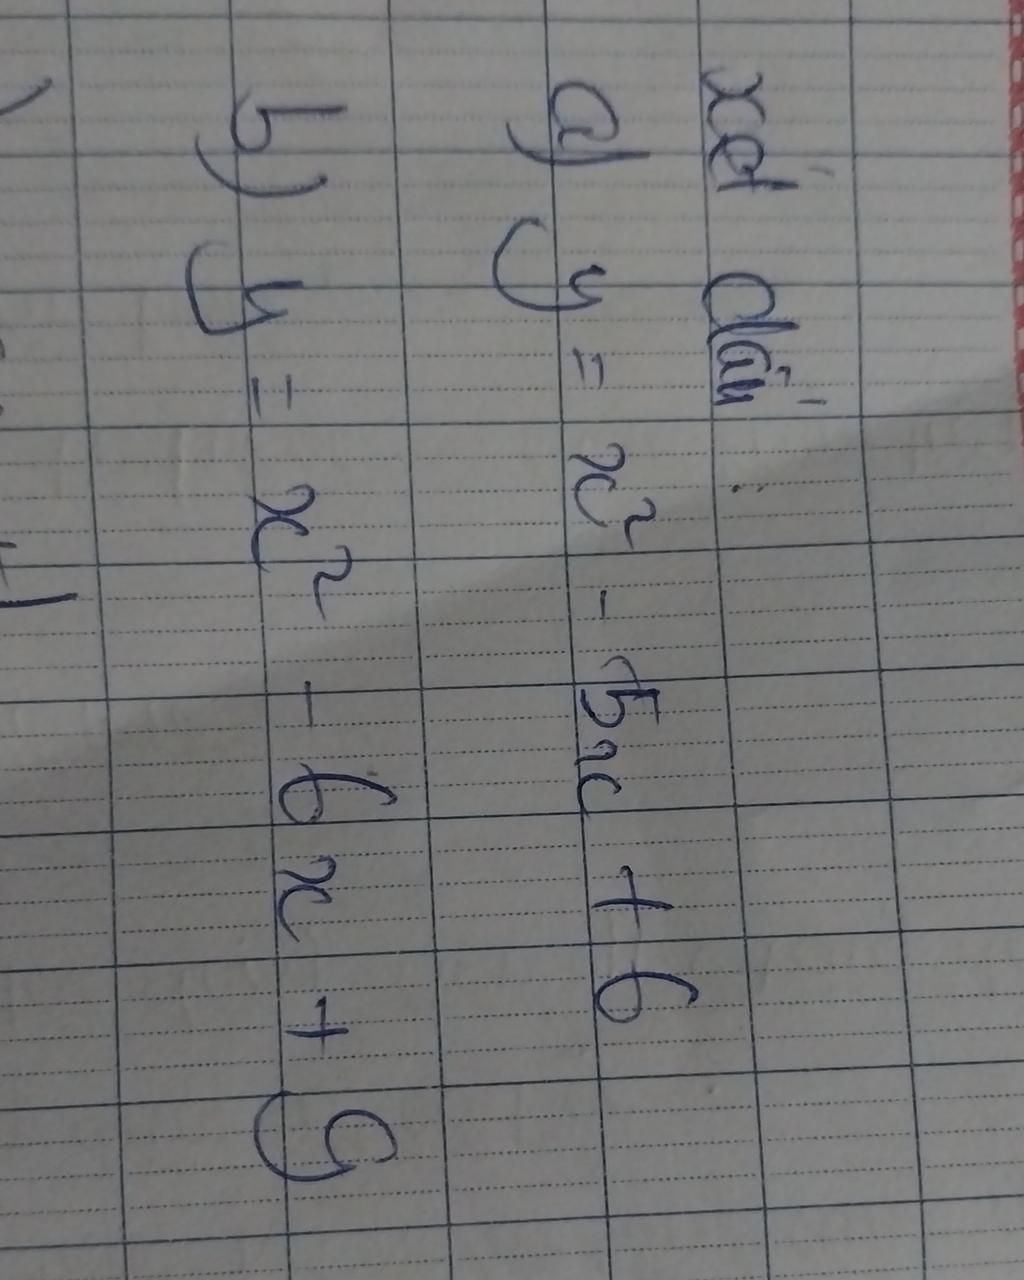 xét dấu
a) y = x² - 5x + 6
b) y = x² - 6x + 9